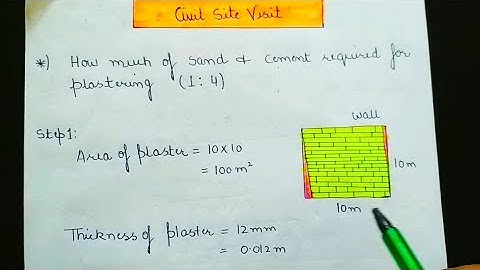 Civil Site Visit
*) How much of Sand & Cement required for
plastering (1:4)
Step 1:
Area of plaster = 10 x 10
= 100 m²
wall
10m
10m
Thickness of plaster = 12mm
= 0.012m